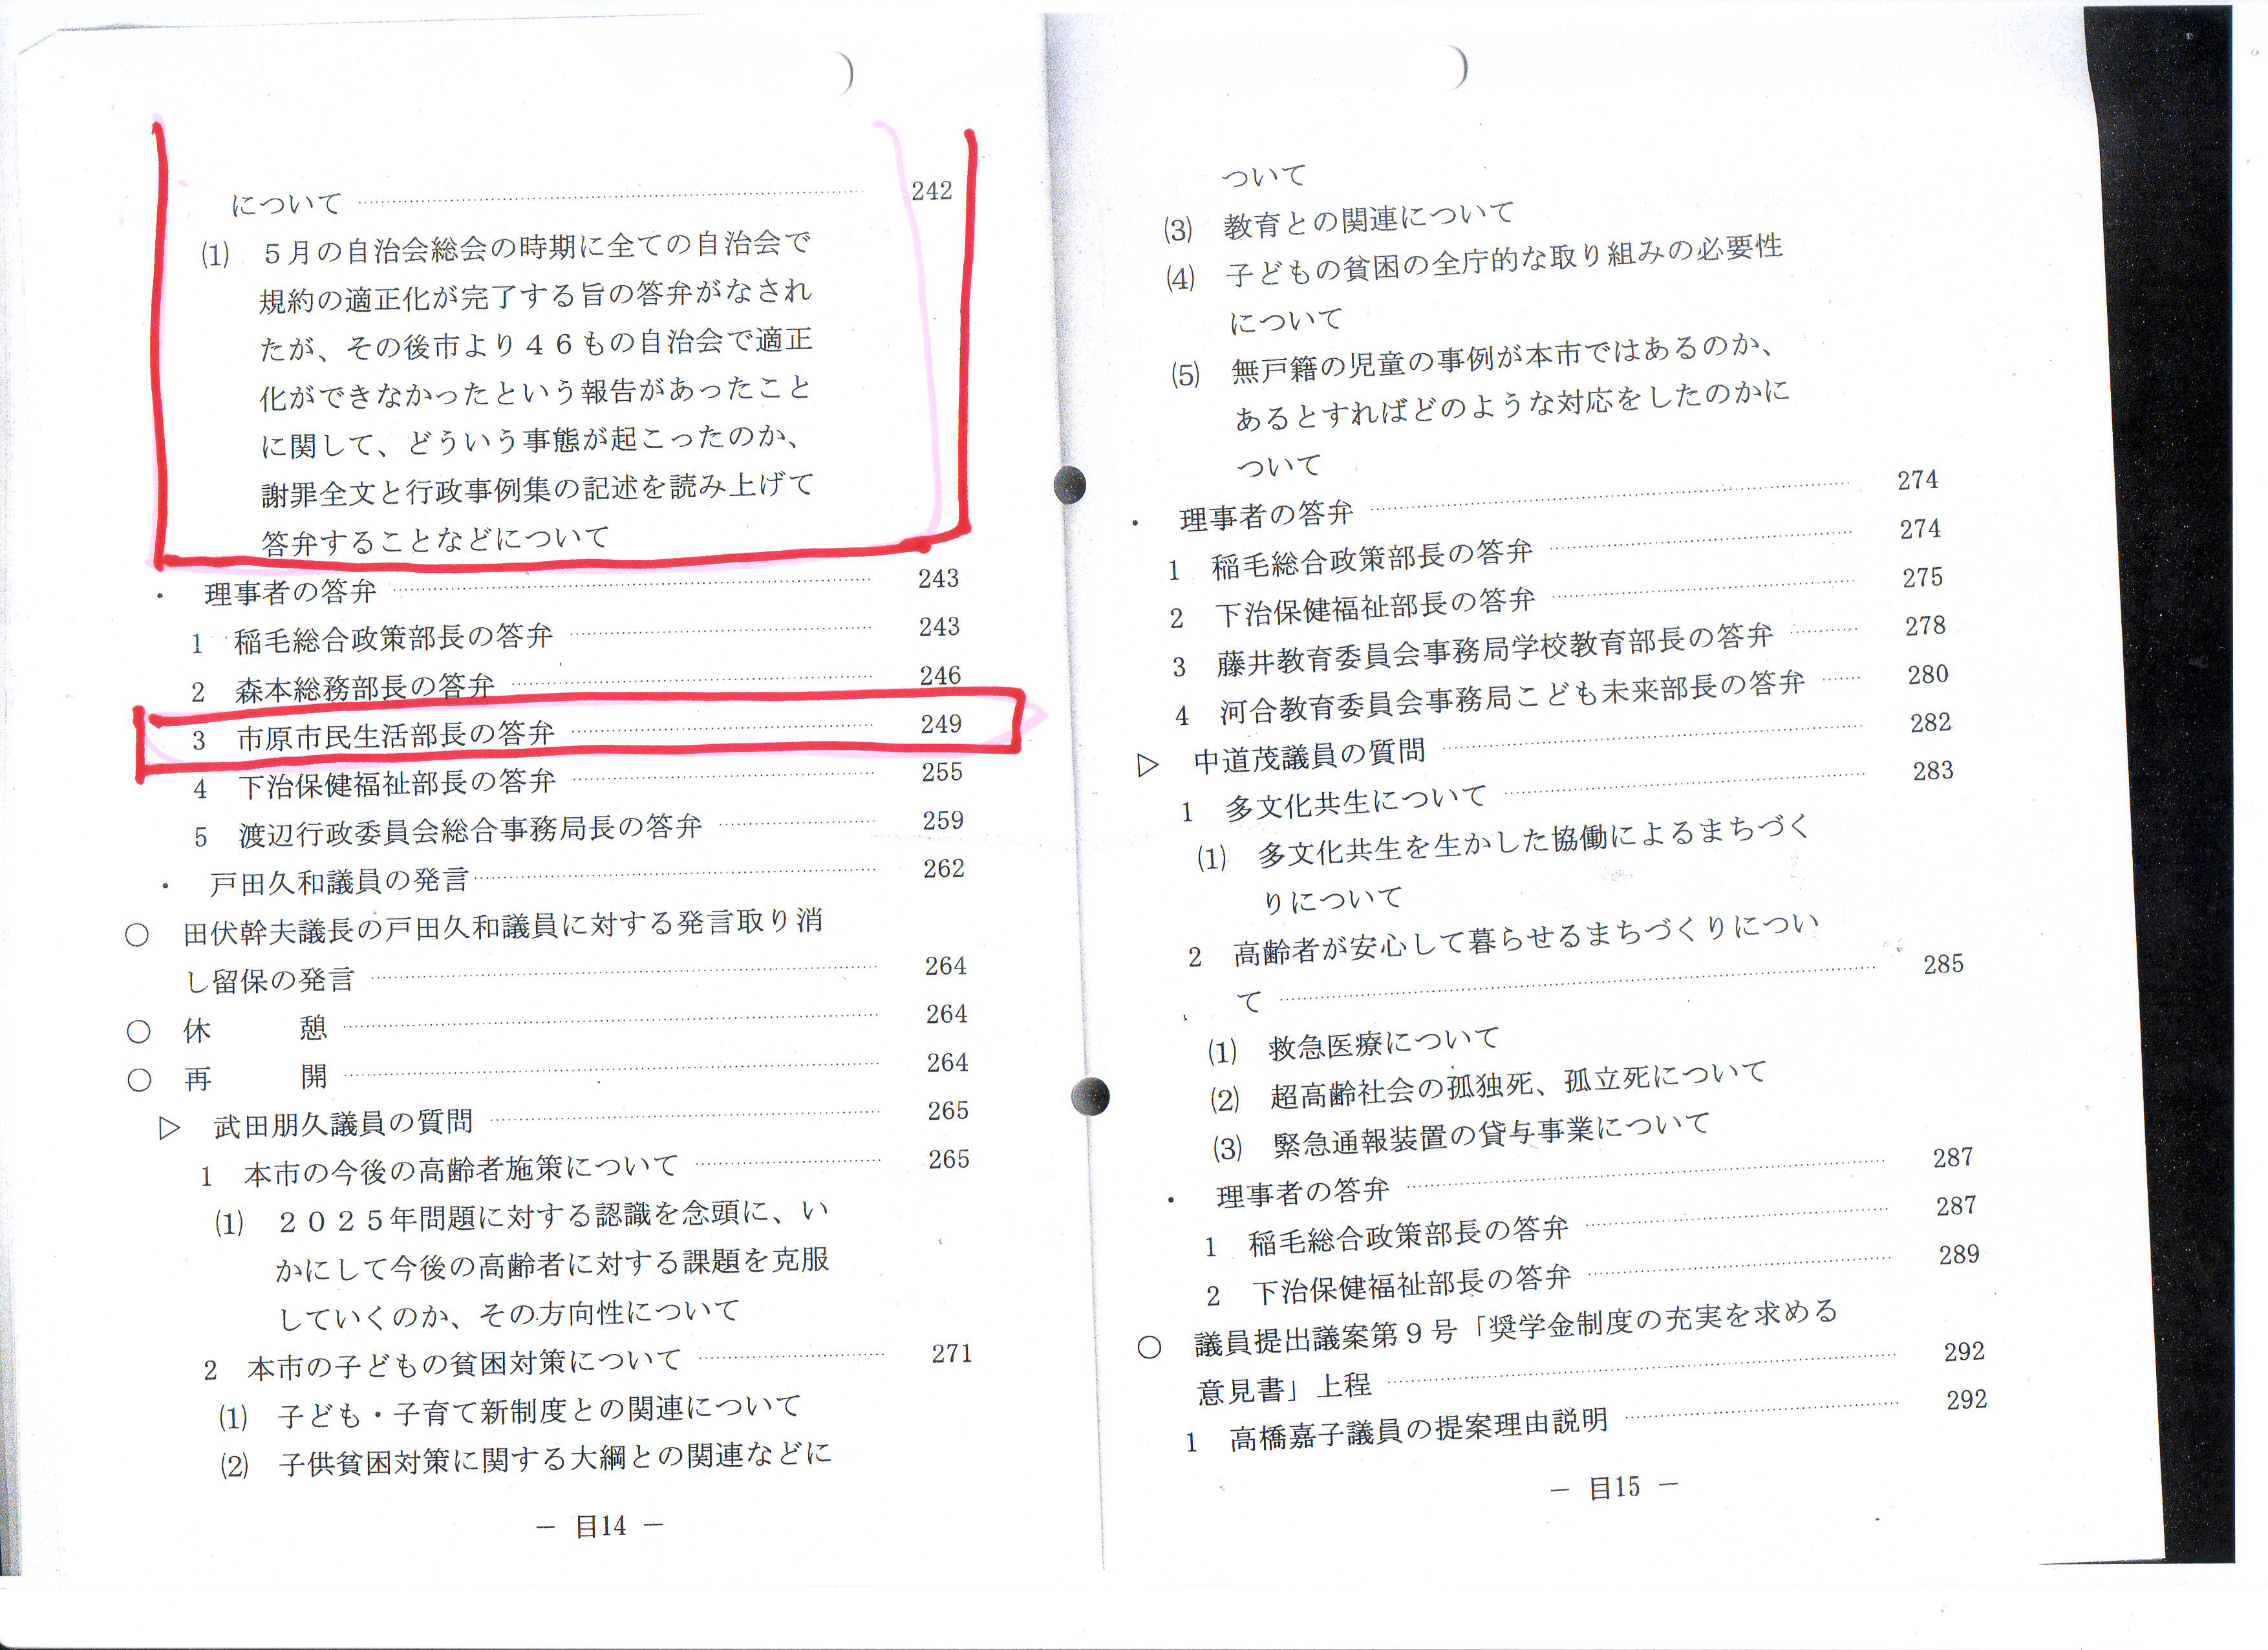 について ……………… 242
⑴ ５月の自治会総会の時期に全ての自治会で
規約の適正化が完了する旨の答弁がなされ
たが、その後市より４６もの自治会で適正
化ができなかったという報告があったこと
に関して、どういう事態が起こったのか、
謝罪全文と行政事例集の記述を読み上げて
答弁することなどについて
・ 理事者の答弁 ……………… 243
1 稲毛総合政策部長の答弁 ……………… 243
2 森本総務部長の答弁 ……………… 246
3 市原市民生活部長の答弁 ……………… 249
4 下治保健福祉部長の答弁 ……………… 255
5 渡辺行政委員会総合事務局長の答弁 ……………… 259
・ 戸田久和議員の発言 ……………… 262
○ 田伏幹夫議長の戸田久和議員に対する発言取り消
し留保の発言 ……………… 264
○ 休 憩 ……………… 264
○ 再 開 ……………… 264
▷ 武田朋久議員の質問 ……………… 265
1 本市の今後の高齢者施策について ……………… 265
⑴ ２０２５年問題に対する認識を念頭に、い
かにして今後の高齢者に対する課題を克服
していくのか、その方向性について
2 本市の子どもの貧困対策について ……………… 271
⑴ 子ども・子育て新制度との関連について
⑵ 子供貧困対策に関する大綱との関連などに
― 目14 ―
ついて
⑶ 教育との関連について
⑷ 子どもの貧困の全庁的な取り組みの必要性
について
⑸ 無戸籍の児童の事例が本市ではあるのか、
あるとすればどのような対応をしたのかに
ついて
・ 理事者の答弁 ……………… 274
1 稲毛総合政策部長の答弁 ……………… 274
2 下治保健福祉部長の答弁 ……………… 275
3 藤井教育委員会事務局学校教育部長の答弁 ……… 278
4 河合教育委員会事務局こども未来部長の答弁 …… 280
▷ 中道茂議員の質問 ……………… 282
1 多文化共生について ……………… 283
⑴ 多文化共生を生かした協働によるまちづく
りについて
2 高齢者が安心して暮らせるまちづくりについ
て ……………… 285
⑴ 救急医療について
⑵ 超高齢社会の孤独死、孤立死について
⑶ 緊急通報装置の貸与事業について
・ 理事者の答弁 ……………… 287
1 稲毛総合政策部長の答弁 ……………… 287
2 下治保健福祉部長の答弁 ……………… 289
○ 議員提出議案第９号「奨学金制度の充実を求める
意見書」上程 ……………… 292
1 高橋嘉子議員の提案理由説明 ……………… 292
― 目15 ―